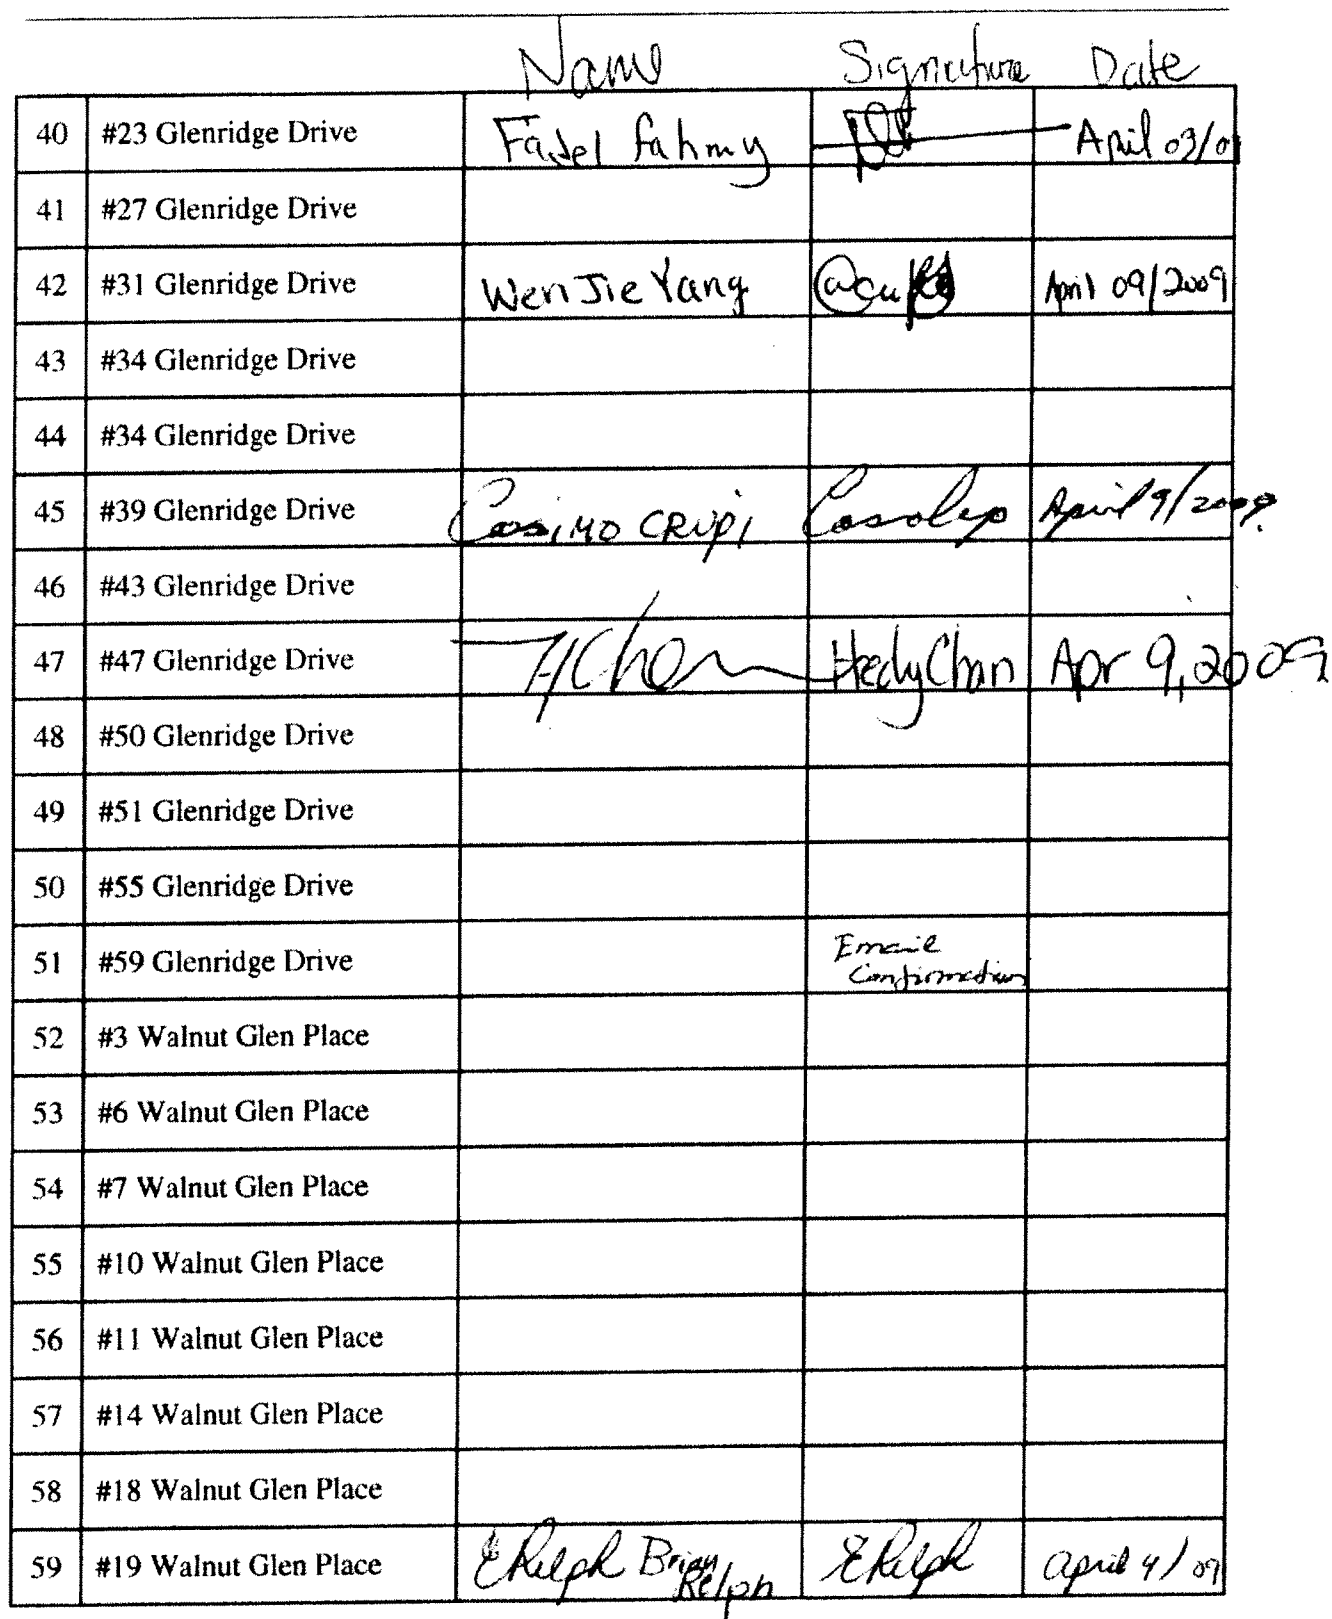 Name Signature Date
40 #23 Glenridge Drive Fadel Fahmy April 03/0
41 #27 Glenridge Drive
42 #31 Glenridge Drive Wen Jie Yang April 09/2009
43 #34 Glenridge Drive
44 #34 Glenridge Drive
45 #39 Glenridge Drive Cosimo CRUPI April 9/2009
46 #43 Glenridge Drive
47 #47 Glenridge Drive HChan Hedy Chan Apr 9, 2009
48 #50 Glenridge Drive
49 #51 Glenridge Drive
50 #55 Glenridge Drive
51 #59 Glenridge Drive Email
Confirmation
52 #3 Walnut Glen Place
53 #6 Walnut Glen Place
54 #7 Walnut Glen Place
55 #10 Walnut Glen Place
56 #11 Walnut Glen Place
57 #14 Walnut Glen Place
58 #18 Walnut Glen Place
59 #19 Walnut Glen Place ERelph Brian ERelph April 4/09
Relph